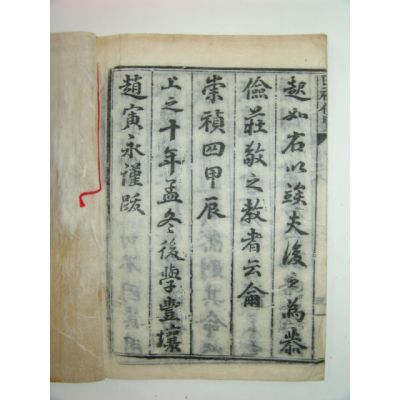 起如右以竢夫後之為恭
儉莊敬之教者云侖
崇禎四甲辰
上之十年孟冬後學豐壤
趙寅永謹跋